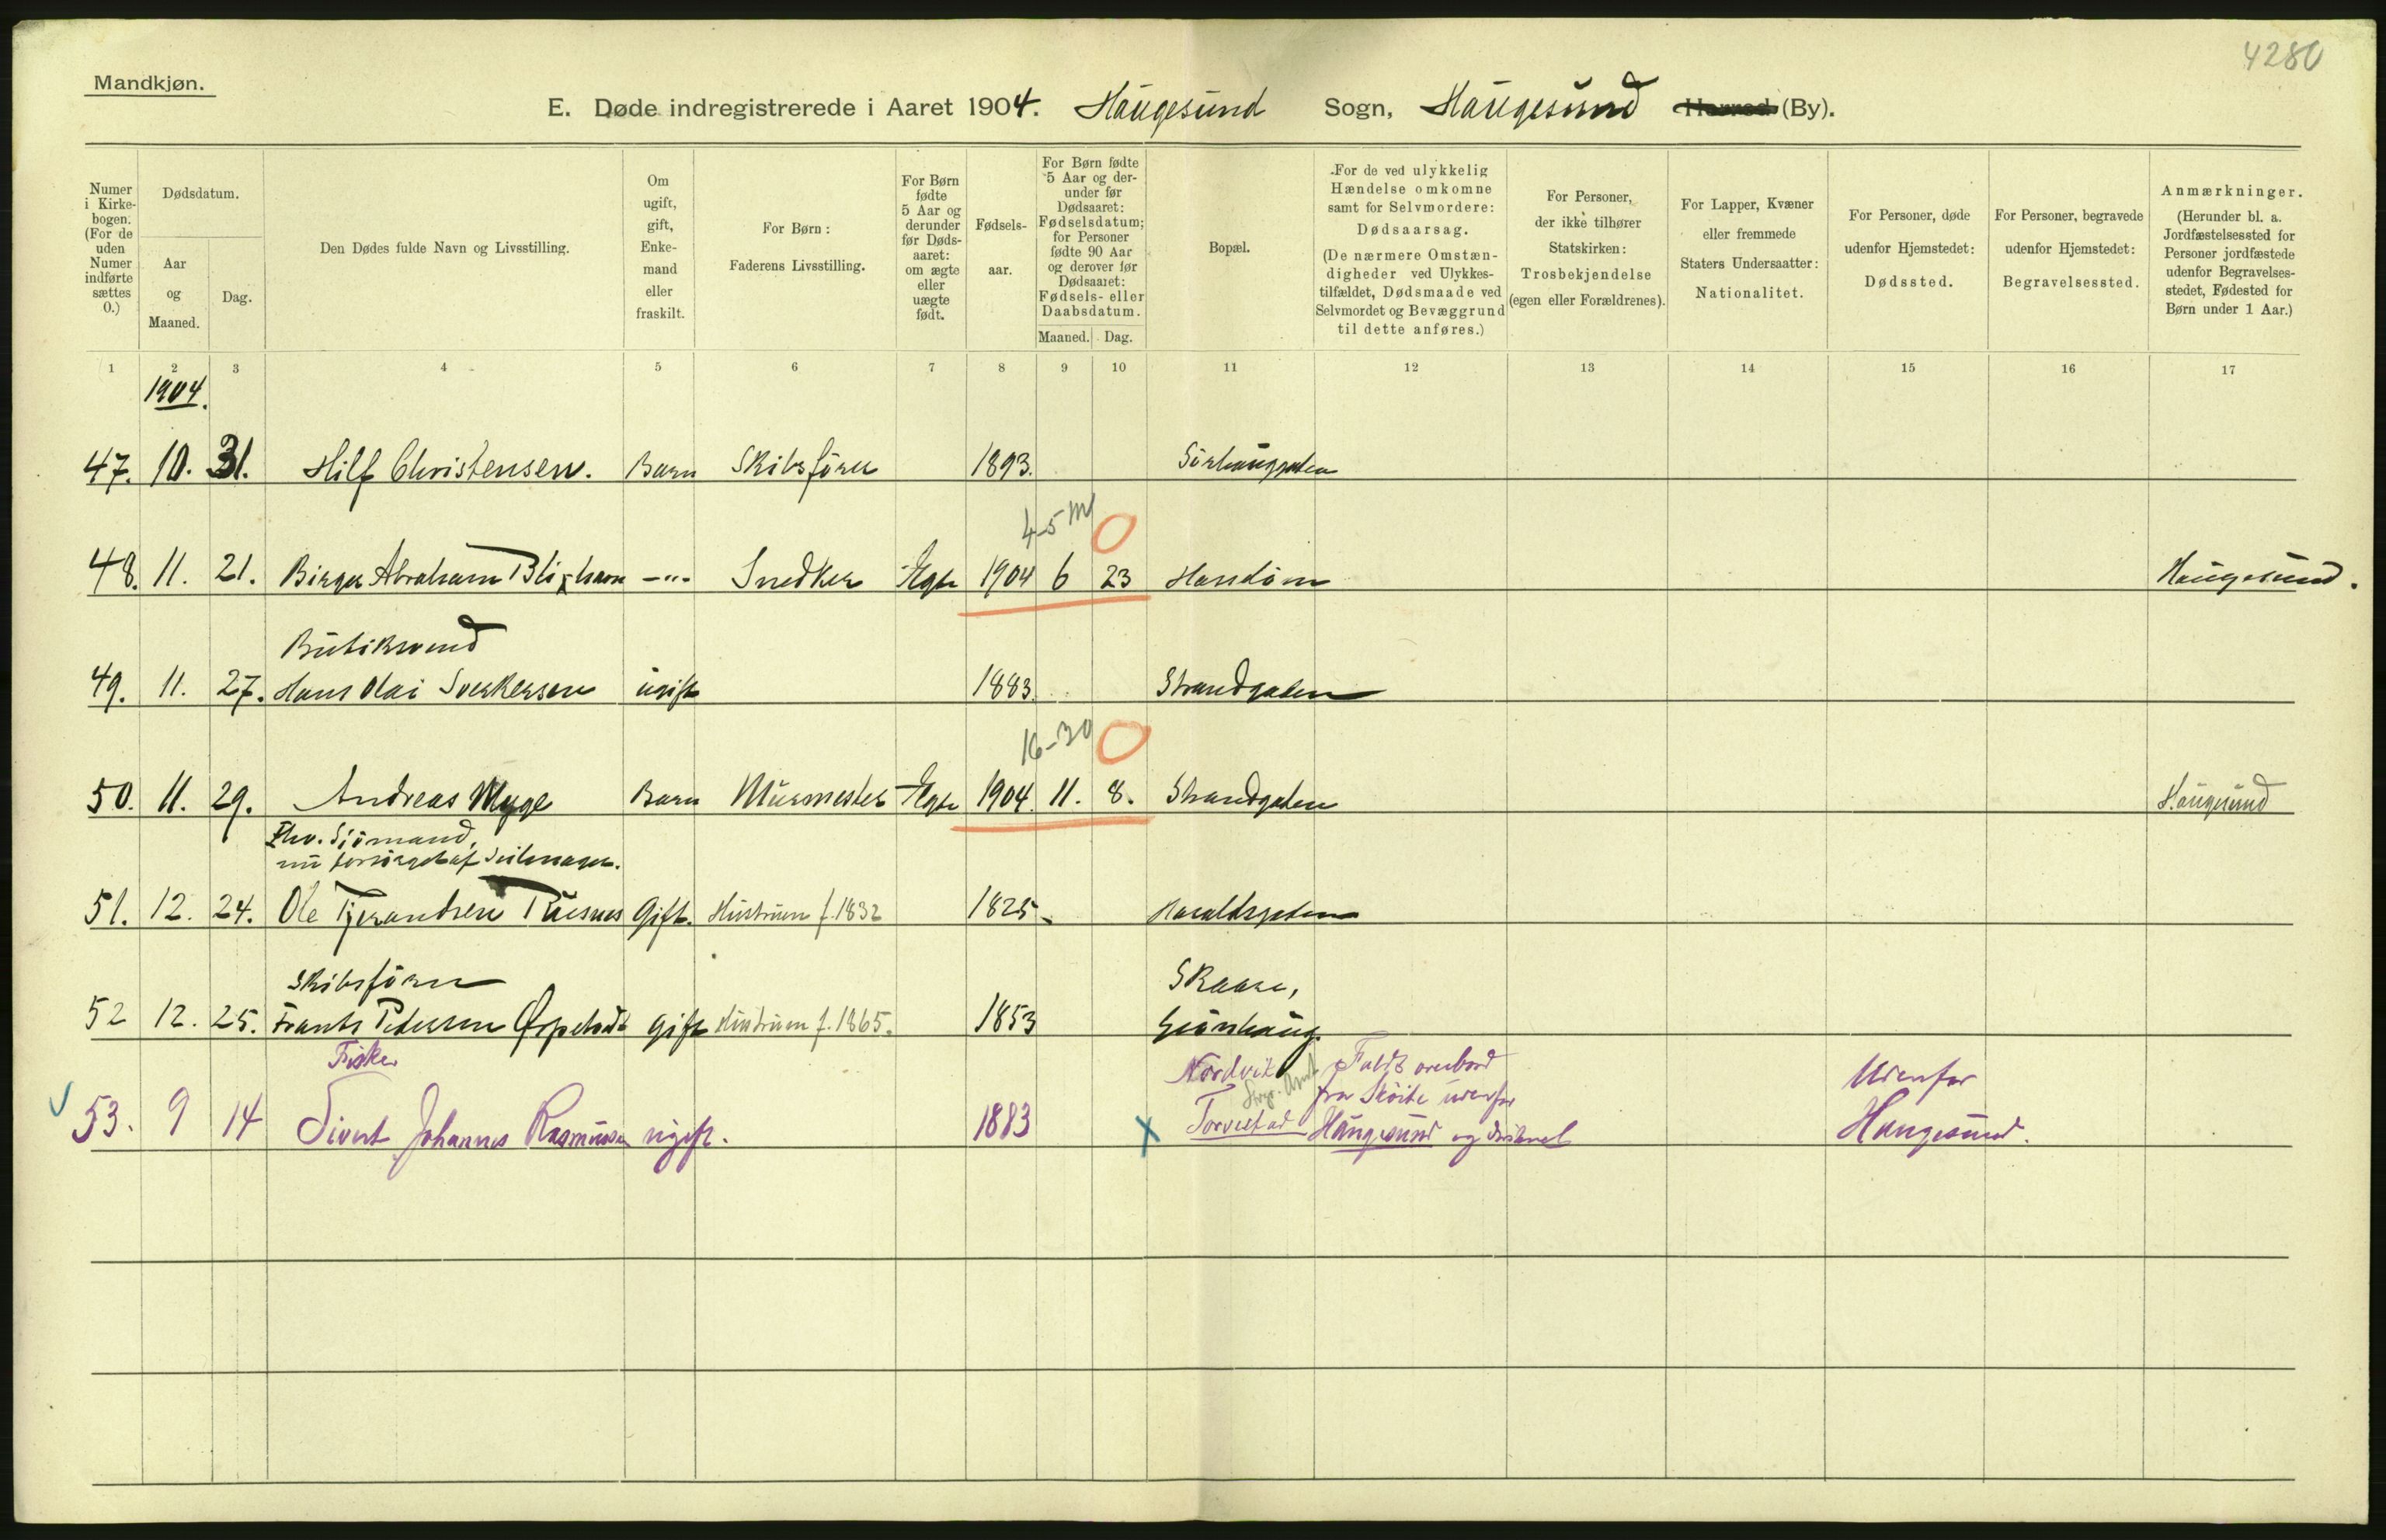 4280
Mandkjøn.
E. Døde indregistrerede i Aaret 1904. Haugesund Sogn, Haugesund Herred (By).
Numer i Kirkebogen. (For de uden Numer indførte sættes 0.)
Dødsdatum.
Aar og Maaned.
Dag.
Den Dødes fulde Navn og Livsstilling.
Om ugift, gift, Enkemand eller fraskilt.
For Børn: Faderens Livsstilling.
For Børn fødte 5 Aar og derunder før Dødsaaret: om ægte eller uægte født.
Fødselsaar.
For Børn fødte 5 Aar og derunder før Dødsaaret: Fødselsdatum; for Personer fødte 90 Aar og derover før Dødsaaret: Fødsels- eller Daabsdatum.
Maaned. Dag.
Bopæl.
For de ved ulykkelig Hændelse omkomne samt for Selvmordere: Dødsaarsag. (De nærmere Omstændigheder ved Ulykkestilfældet, Dødsmaade ved Selvmordet og Bevæggrund til dette anføres.)
For Personer, der ikke tilhører Statskirken: Trosbekjendelse (egen eller Forældrenes).
For Lapper, Kvæner eller fremmede Staters Undersaatter: Nationalitet.
For Personer, døde udenfor Hjemstedet: Dødssted.
For Personer, begravede udenfor Hjemstedet: Begravelsessted.
Anmærkninger. (Herunder bl. a. Jordfæstelsessted for Personer jordfæstede udenfor Begravelsesstedet, Fødested for Børn under 1 Aar.)
1 2 3 4 5 6 7 8 9 10 11 12 13 14 15 16 17
1904.
47. 10. 31. Hilf Christensen. Barn Skibsfører 1893. Sørhauggaten
4-5 M 0
48. 11. 21. Birger Abraham Blixhavn -"- Snedker Ægte 1904 6 23 Hasseløen Haugesund.
Butiksvend
49. 11. 27. Hans Olai Sverkersen ugift 1883. Strandgaten
16-30 0
50. 11. 29. Andreas Myge Barn Murmester Ægte 1904. 11. 8. Strandgaten Haugesund
Fhv. Sjømand,
nu forsørget af
51. 12. 24. Ole Tjerandsen Gift. Hustruen f. 1832 1825 Haraldsgaten
Skibsfører Skaare,
52 12. 25. Frants Pedersen gift Hustruen f. 1865. 1853 Grønhaug.
Fisker Nordvik Faldt overbord Udenfor
Stvgr. Amt fra Skøite udenfor
53. 9 14 Sivert Johannes Rasmussen ugift. 1883 x Torvestad Haugesund og druknet Haugesund.